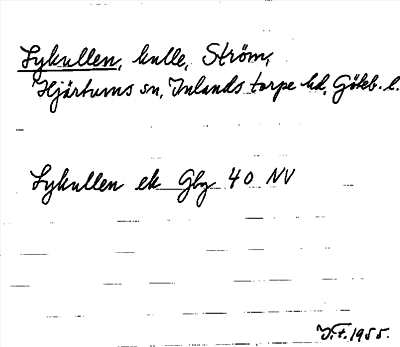 Lykullen, kulle, Ström,
Hjärtums sn, Inlands torpe hd, Göteb. l.
Lykullen ek Gbg 40 NV
1955.